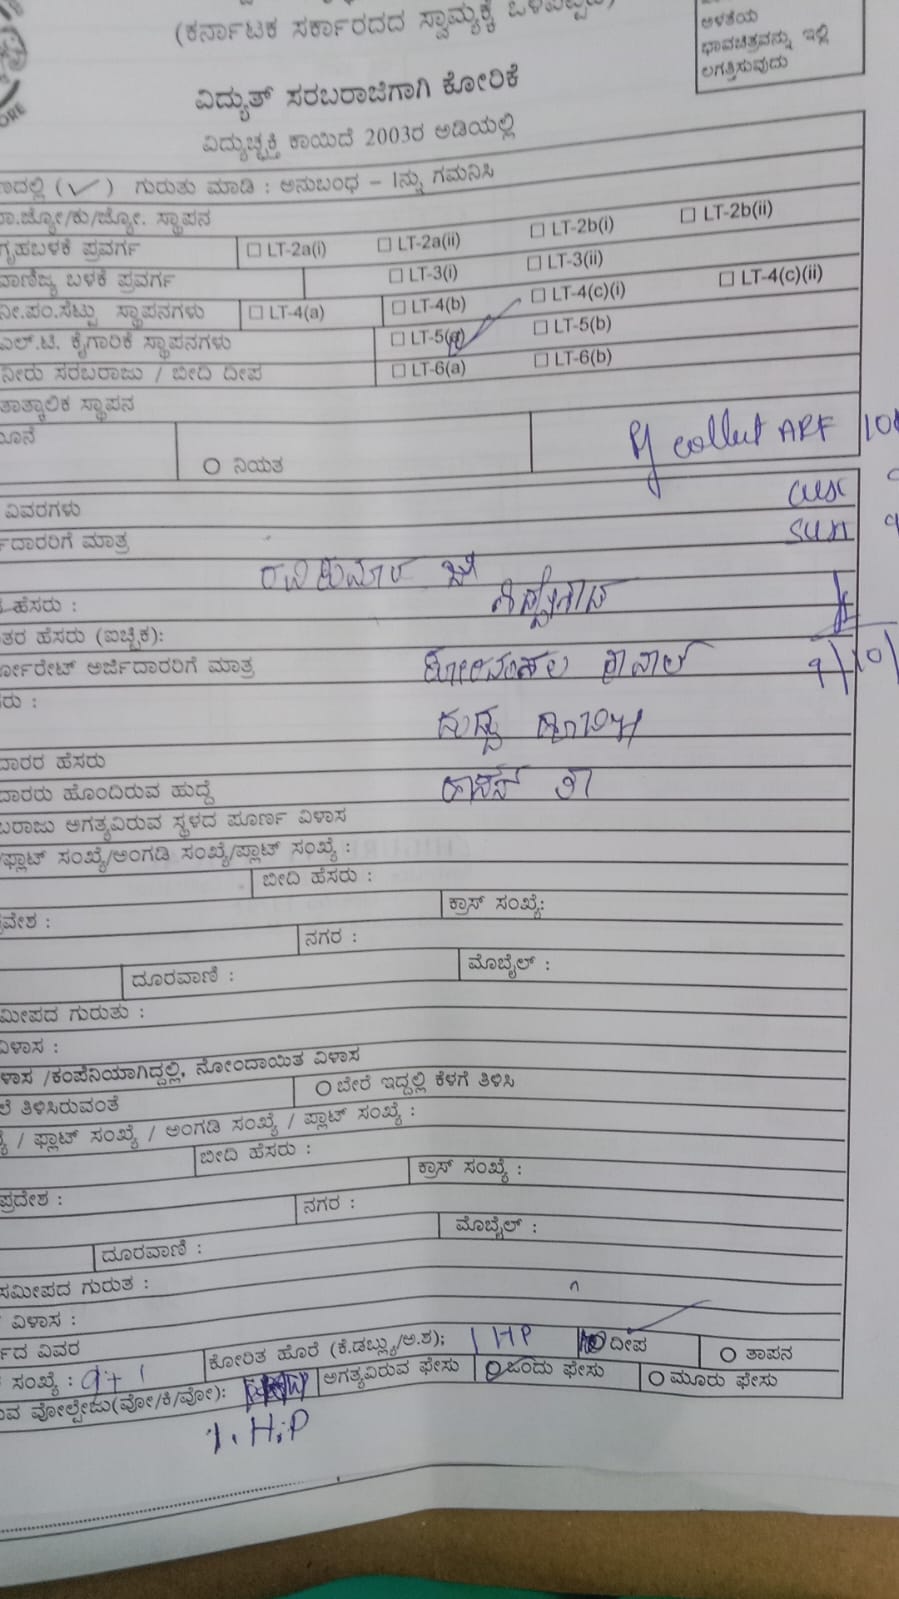 (ಕರ್ನಾಟಕ ಸರ್ಕಾರದದ ಸ್ವಾಮ್ಯಕ್ಕೆ ಒಳಪಟ್ಟಿದೆ)
ಅಳತೆಯ
ಭಾವಚಿತ್ರವನ್ನು ಇಲ್ಲಿ
ಲಗತ್ತಿಸುವುದು
ORE
ವಿದ್ಯುತ್ ಸರಬರಾಜಿಗಾಗಿ ಕೋರಿಕೆ
ವಿದ್ಯುಚ್ಛಕ್ತಿ ಕಾಯಿದೆ 2003ರ ಅಡಿಯಲ್ಲಿ
(✓) ಗುರುತು ಮಾಡಿ : ಅನುಬಂಧ – Iನ್ನು ಗಮನಿಸಿ
ಾ.ಜ್ಯೋ/ಕು/ಜ್ಯೋ. ಸ್ಥಾಪನ
ಗೃಹಬಳಕೆ ಪ್ರವರ್ಗ ☐ LT-2a(i) ☐ LT-2a(ii) ☐ LT-2b(i) ☐ LT-2b(ii)
ವಾಣಿಜ್ಯ ಬಳಕೆ ಪ್ರವರ್ಗ ☐ LT-3(i) ☐ LT-3(ii)
ನೀ.ಪಂ.ಸೆಟ್ಟು ಸ್ಥಾಪನಗಳು ☐ LT-4(a) ☐ LT-4(b) ☐ LT-4(c)(i) ☐ LT-4(c)(ii)
ಎಲ್.ಟಿ. ಕೈಗಾರಿಕೆ ಸ್ಥಾಪನಗಳು ☐ LT-5(a) ☐ LT-5(b)
ನೀರು ಸರಬರಾಜು / ಬೀದಿ ದೀಪ ☐ LT-6(a) ☐ LT-6(b)
ತಾತ್ಕಾಲಿಕ ಸ್ಥಾಪನ
○ ನಿಯತ collect ARF
ವಿವರಗಳು
ದಾರರಿಗೆ ಮಾತ್ರ
ರವಿಕುಮಾರ
ಹೆಸರು :
ತರ ಹೆಸರು (ಐಚ್ಛಿಕ):
ರ್ಪೋರೇಟ್ ಅರ್ಜಿದಾರರಿಗೆ ಮಾತ್ರ
ರು :
ದಾರರ ಹೆಸರು
ದಾರರು ಹೊಂದಿರುವ ಹುದ್ದೆ ಹಾಸನ ತಾ
ಬರಾಜು ಅಗತ್ಯವಿರುವ ಸ್ಥಳದ ಪೂರ್ಣ ವಿಳಾಸ
/ಫ್ಲಾಟ್ ಸಂಖ್ಯೆ/ಅಂಗಡಿ ಸಂಖ್ಯೆ/ಪ್ಲಾಟ್ ಸಂಖ್ಯೆ :
ಬೀದಿ ಹೆಸರು :
ಕ್ರಾಸ್ ಸಂಖ್ಯೆ:
ನಗರ :
ದೂರವಾಣಿ : ಮೊಬೈಲ್ :
ಮೀಪದ ಗುರುತು :
ವಿಳಾಸ :
ಳಾಸ /ಕಂಪೆನಿಯಾಗಿದ್ದಲ್ಲಿ, ನೋಂದಾಯಿತ ವಿಳಾಸ
ಲೆ ತಿಳಿಸಿರುವಂತೆ ○ ಬೇರೆ ಇದ್ದಲ್ಲಿ ಕೆಳಗೆ ತಿಳಿಸಿ
/ ಫ್ಲಾಟ್ ಸಂಖ್ಯೆ / ಅಂಗಡಿ ಸಂಖ್ಯೆ / ಪ್ಲಾಟ್ ಸಂಖ್ಯೆ :
ಬೀದಿ ಹೆಸರು :
ಪ್ರದೇಶ : ಕ್ರಾಸ್ ಸಂಖ್ಯೆ :
ನಗರ :
ದೂರವಾಣಿ : ಮೊಬೈಲ್ :
ಸಮೀಪದ ಗುರುತ :
ವಿಳಾಸ :
ದ ವಿವರ
ಸಂಖ್ಯೆ : 9+1 ಕೋರಿತ ಹೊರೆ (ಕೆ.ಡಬ್ಲ್ಯು/ಅ.ಶ); 1 HP ದೀಪ ○ ತಾಪನ
ವ ವೋಲ್ಟೇಜು(ವೋ/ಕಿ/ವೋ): ಅಗತ್ಯವಿರುವ ಫೇಸು ○ ಒಂದು ಫೇಸು ○ ಮೂರು ಫೇಸು
1. H.P